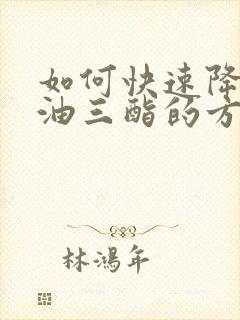 如何快速降
油三酯的方
林鸿年